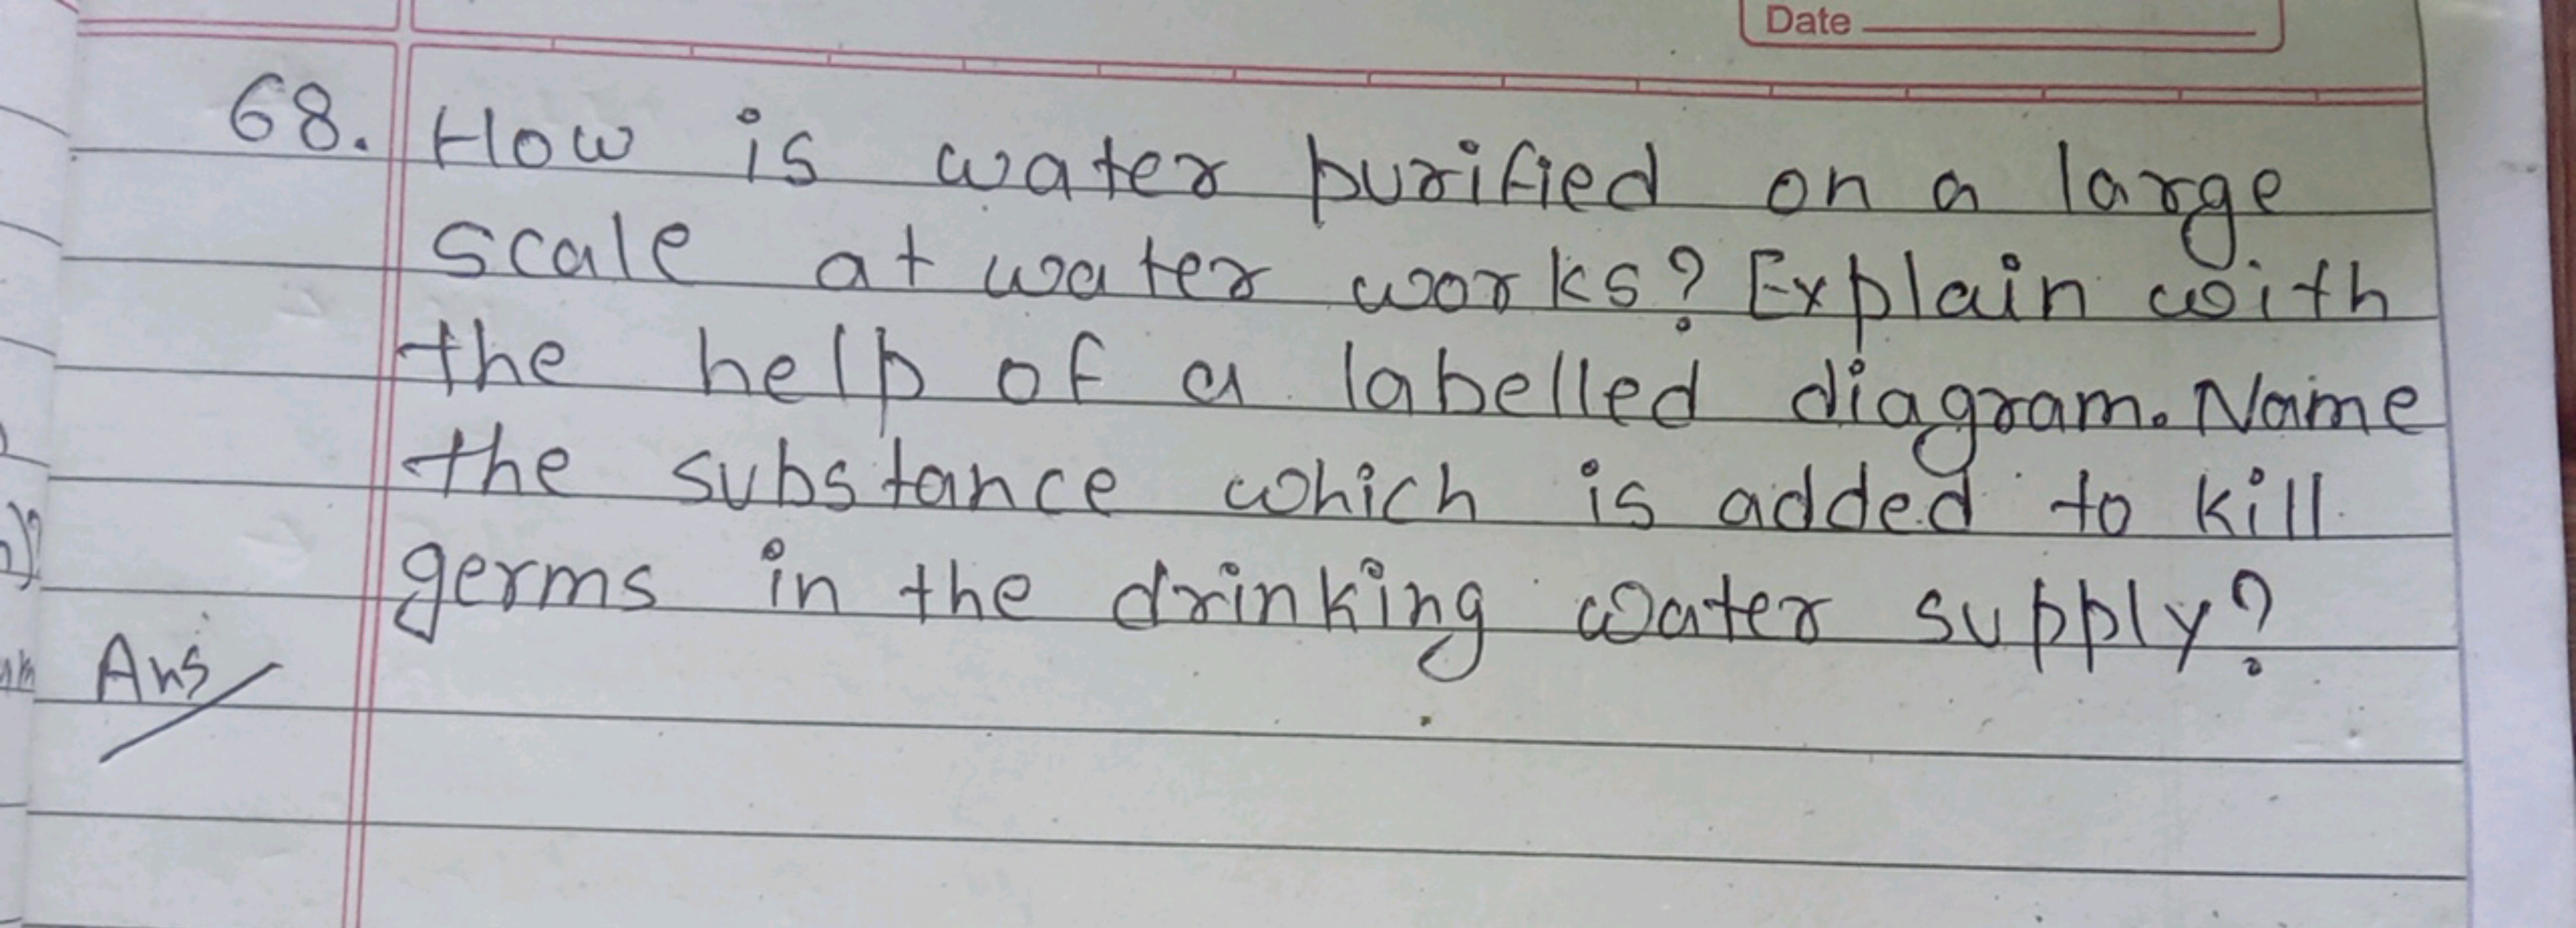 Date
68. How is water purified on a large
scale at water works? Explain with
the help of a labelled diagram. Name
the substance which is added to kill
germs in the drinking water supply?
Ans